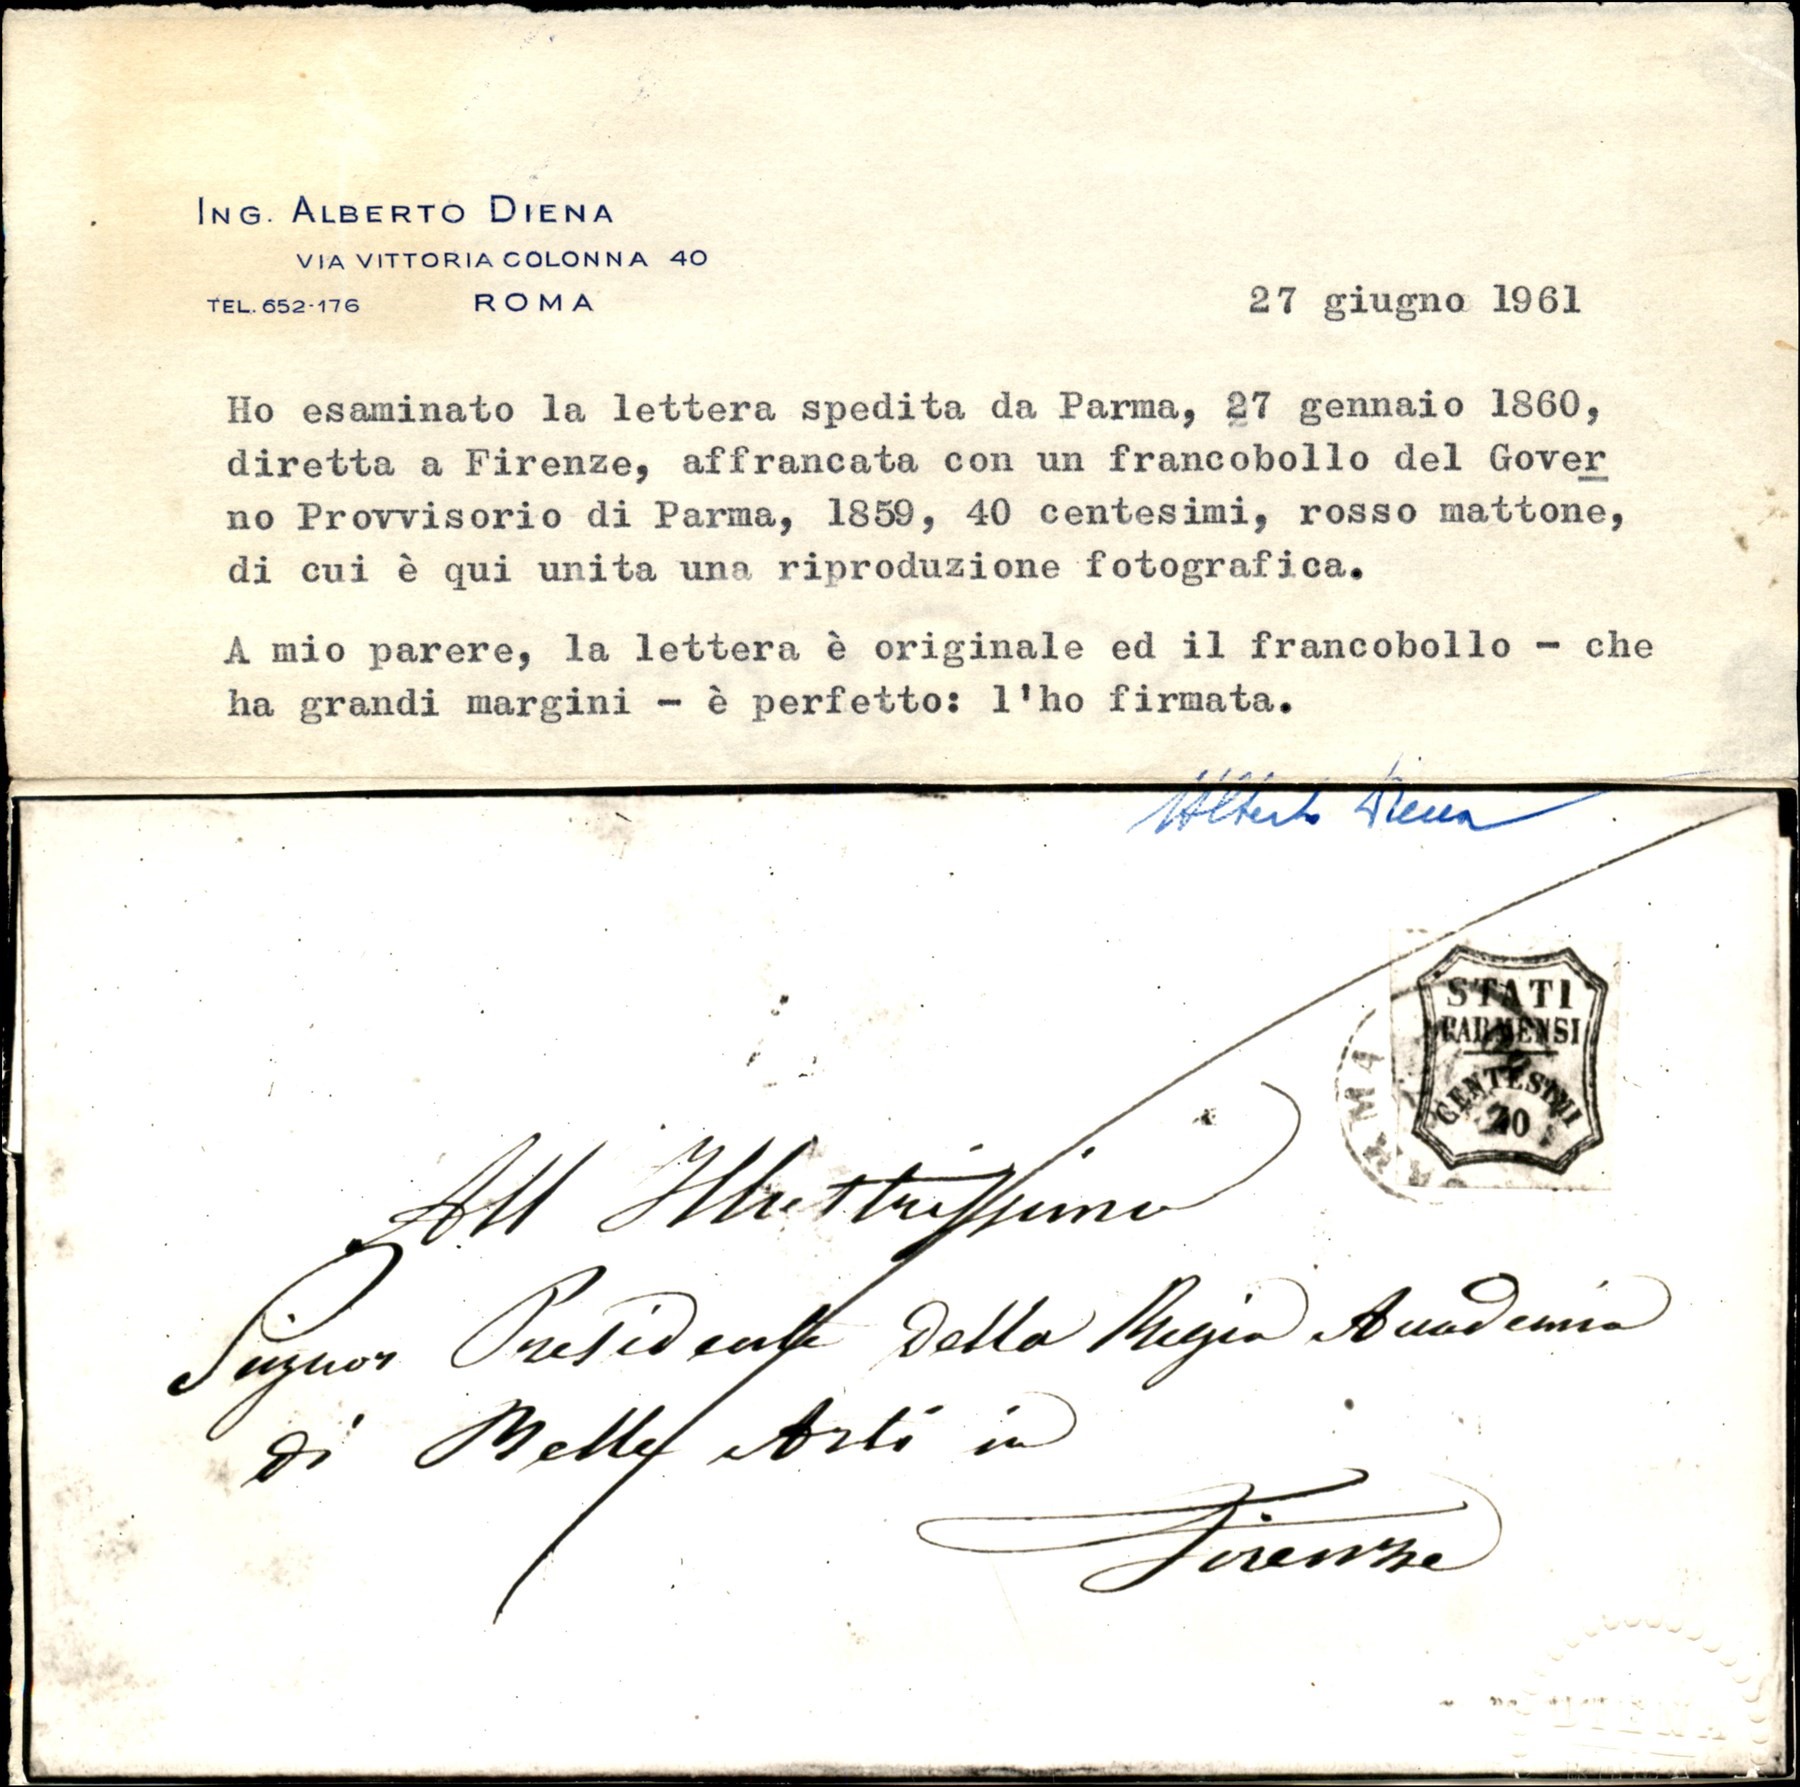 ING. ALBERTO DIENA
VIA VITTORIA COLONNA 40
TEL. 652-176 ROMA
27 giugno 1961
Ho esaminato la lettera spedita da Parma, 27 gennaio 1860,
diretta a Firenze, affrancata con un francobollo del Gover
no Provvisorio di Parma, 1859, 40 centesimi, rosso mattone,
di cui è qui unita una riproduzione fotografica.
A mio parere, la lettera è originale ed il francobollo - che
ha grandi margini - è perfetto: l'ho firmata.
Alberto Diena
STATI
PARMENSI
CENTESIMI
40
All Illustrissimo
Signor Presidente della Regia Accademia
di Belle Arti in
Firenze